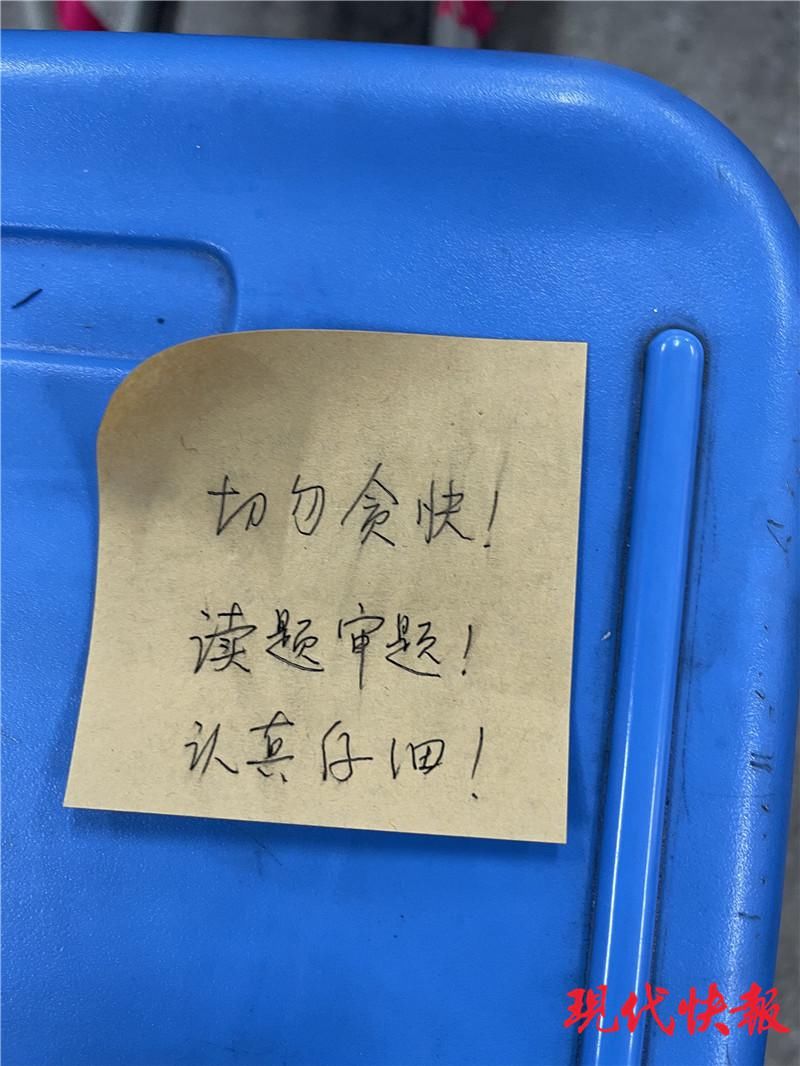 切勿贪快！
读题审题！
认真仔细！
现代快報